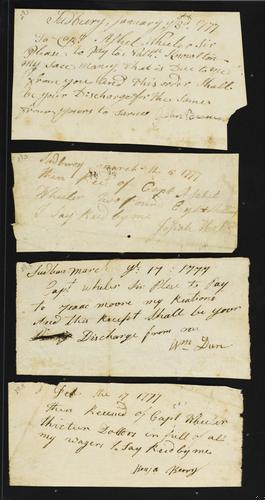 Sudbury, January ye 23d 1777
To Capt Asahel Wheeler Sir
Please to pay to Nathn Knowlton
my Sace Money that is Due to me
from you and this order Shall
be your Discharge for the Same
from yours to Serve
Sudbury march the 6 1777
then Rec of Capt Asahel
Wheeler two pound Eight
I Say Recd by me
Josiah
Sudbury march ye 17 : 1777
Capt wheler Sir Ples to Pay
to Isaac moore my Rations
And this Receipt Shall be your
Discharge from me
Wm Dun
Feb the 17 1777
then Receved of Capt Wheeler
thirteen Dollers in full of all
my wagers I Say Recd by me
Benja Berry